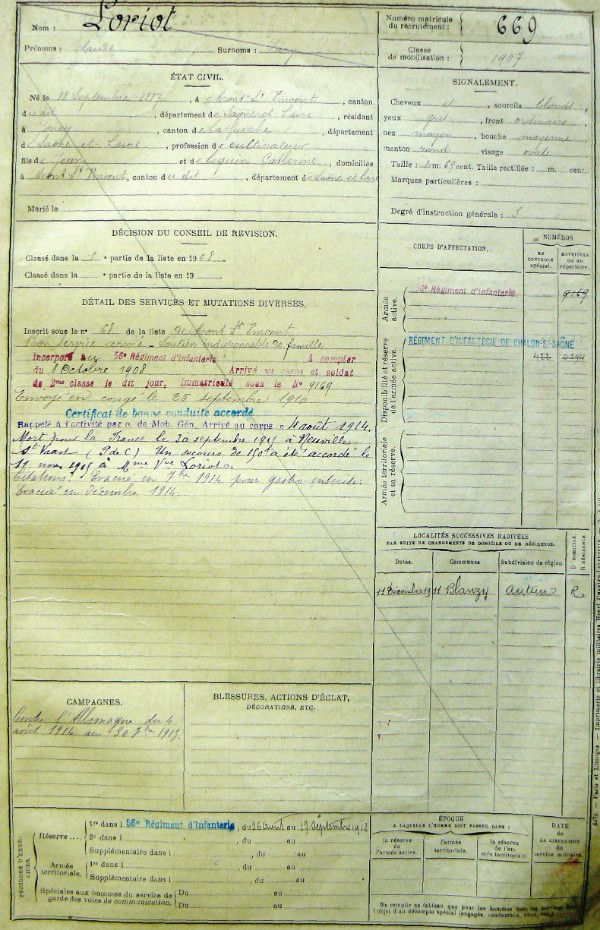 Nom : Loriot
Prénoms : Claude Surnoms :
Numéro matricule du recrutement : 669
Classe de mobilisation : 1907
ÉTAT CIVIL.
Né le 18 Septembre 1887, à Mont St Vincent, canton
du dit, département de Saône et Loire, résidant
à Joncy, canton de La Guiche, département
de Saône et Loire, profession de cultivateur
fils de Jean et de Seguin Catherine, domiciliés
à Mont St Vincent, canton du dit, département de Saône et Loire
Marié le
SIGNALEMENT.
Cheveux et sourcils blonds,
yeux gris, front ordinaire,
nez moyen, bouche moyenne,
menton rond, visage ovale
Taille : 1 m. 69 cent. Taille rectifiée : m. cent.
Marques particulières :
Degré d'instruction générale : 3
DÉCISION DU CONSEIL DE REVISION.
Classé dans la 1 e partie de la liste en 1908
Classé dans la e partie de la liste en 19
DÉTAIL DES SERVICES ET MUTATIONS DIVERSES.
Inscrit sous le n° 68 de la liste de Mont St Vincent
Bon service armé - Soutien indispensable de famille
Incorporé au 56e Régiment d'Infanterie à compter
du 8 Octobre 1908 Arrivé au corps et soldat
de 2me classe le dit jour, immatriculé sous le N° 9169
Envoyé en congé le 25 septembre 1910
Certificat de bonne conduite accordé
Rappelé à l'activité par o. de Mob. Gén. Arrivé au corps le 4 août 1914.
Mort pour la France le 30 septembre 1915 à Neuville
St Vaast (P de C) Un secours de 150f a été accordé le
11 nov 1915 à Mme Vve Loriot.
Citations : Evacué en 7bre 1914 pour gastro entérite.
Evacué en décembre 1914.
CORPS D'AFFECTATION.
NUMÉROS
au contrôle spécial.
matricule ou au répertoire.
Armée active.
56e Régiment d'Infanterie 9169
Disponibilité et réserve de l'armée active.
RÉGIMENT D'INFANTERIE DE CHALON-S/-SAÔNE
Armée territoriale et sa réserve.
LOCALITÉS SUCCESSIVES HABITÉES
PAR SUITE DE CHANGEMENTS DE DOMICILE OU DE RÉSIDENCE.
Dates. Communes Subdivision de région. D domicile. R résidence
11 Décembre 1911 Blanzy Autun R
CAMPAGNES.
Contre l'Allemagne du 4
août 1914 au 30 7bre 1915.
BLESSURES, ACTIONS D'ÉCLAT,
DÉCORATIONS, ETC.
PÉRIODES D'EXERCICES.
Réserve....
1re dans l 56e Régiment d'Infanterie, du 26 Août au 17 Septembre 1912
2e dans l , du au
Supplémentaire dans l , du au
Armée territoriale.
1re dans l , du au
Supplémentaire dans l , du au
Spéciales aux hommes du service de garde des voies de communication.
Du au
Du au
ÉPOQUE
A LAQUELLE L'HOMME DOIT PASSER DANS :
la réserve de l'armée active.
l'armée territoriale.
la réserve de l'armée territoriale.
DATE de la LIBÉRATION du service militaire.
Ne remplir ce tableau que pour les hommes dont les services font l'objet d'un décompte spécial (engagés, condamnés, omis, etc.)